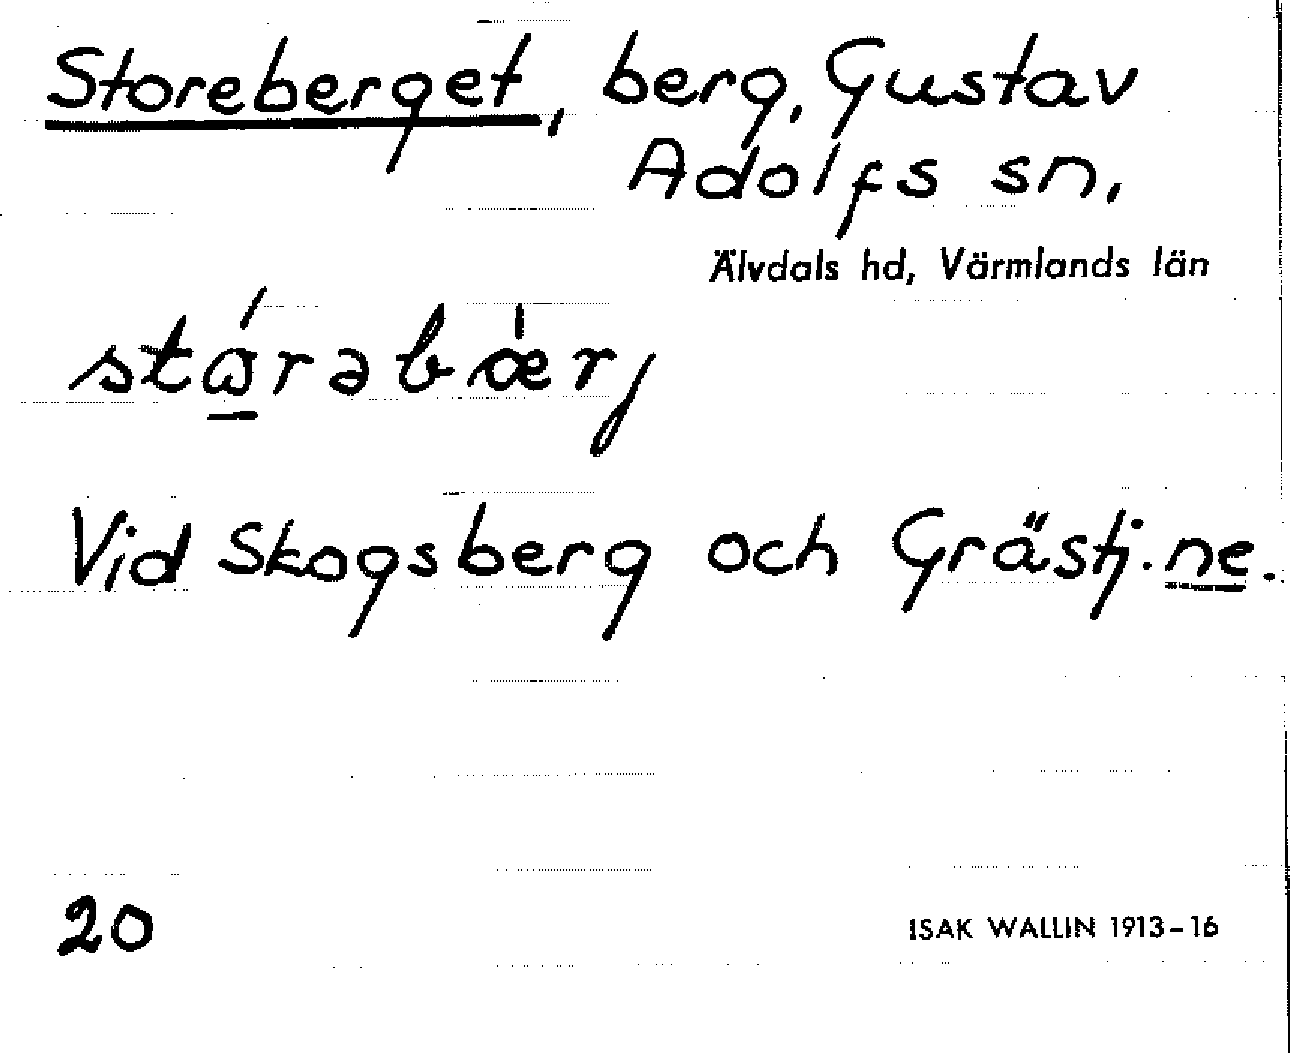 Storeberget, berg, Gustav
Adolfs sn,
Älvdals hd, Värmlands län
stárəbæ̍rj
Vid Skogsberg och Grästj.ne.
20
ISAK WALLIN 1913-16